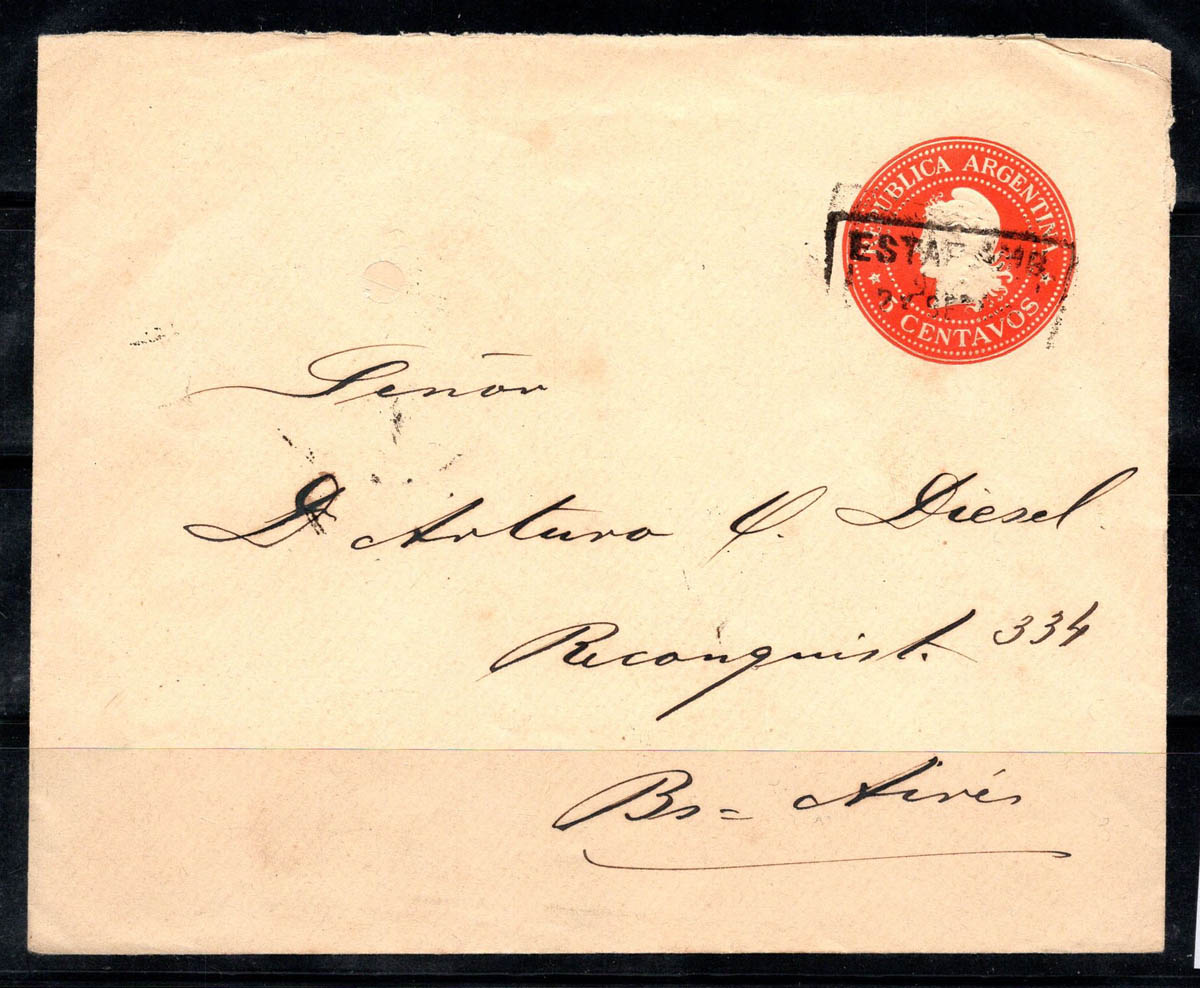 REPUBLICA ARGENTINA
5 CENTAVOS
ESTAF AMB
SE
Señor
D Arturo Diesel
Reconquist. 334
Bs= Aires